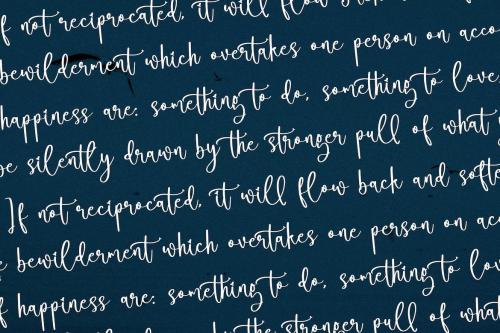 f not reciprocated, it will flow back
bewilderment which overtakes one person on acco
happiness are: something to do, something to love
be silently drawn by the stronger pull of what
If not reciprocated, it will flow back and softe
e bewilderment which overtakes one person on acc
f happiness are: something to do, something to lov
by the stronger pull of what